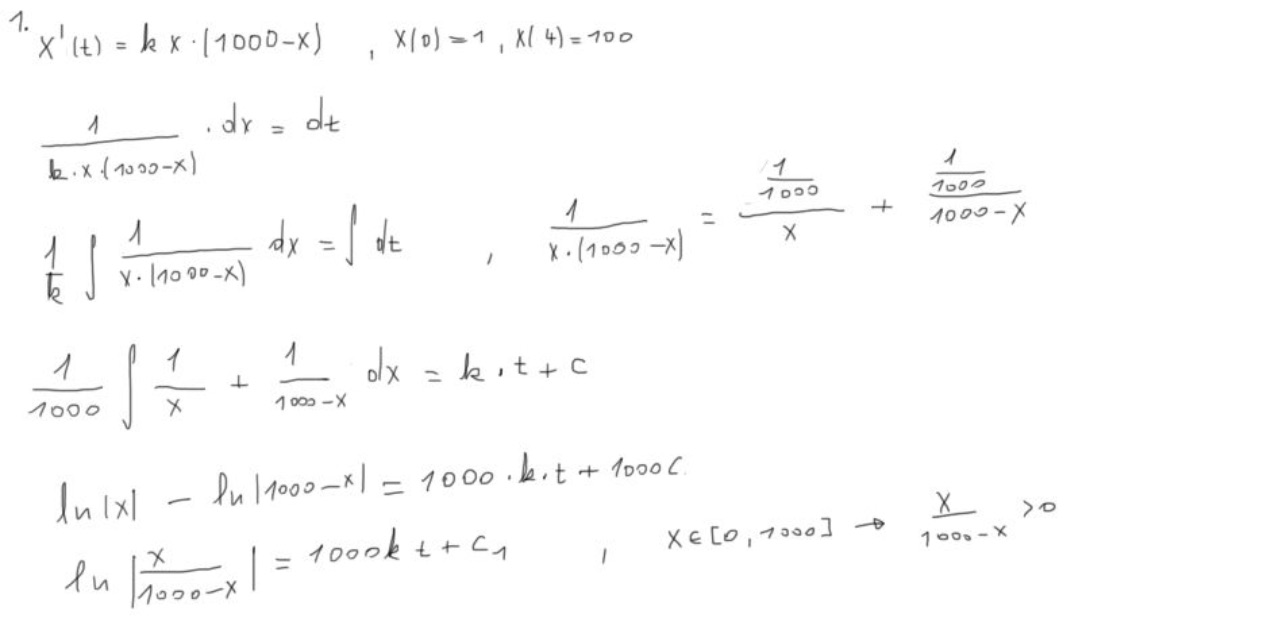 1.
x'(t) = k x · (1000-x) , x(0) = 1 , x(4) = 100
1/(k·x·(1000-x)) · dx = dt
1/k ∫ 1/(x·(1000-x)) dx = ∫ dt , 1/(x·(1000-x)) = (1/1000)/x + (1/1000)/(1000-x)
1/1000 ∫ 1/x + 1/(1000-x) dx = k·t + c
ln|x| - ln|1000-x| = 1000·k·t + 1000C
ln |x/(1000-x)| = 1000k t + C₁ , x∈[0, 1000] → x/(1000-x) >0